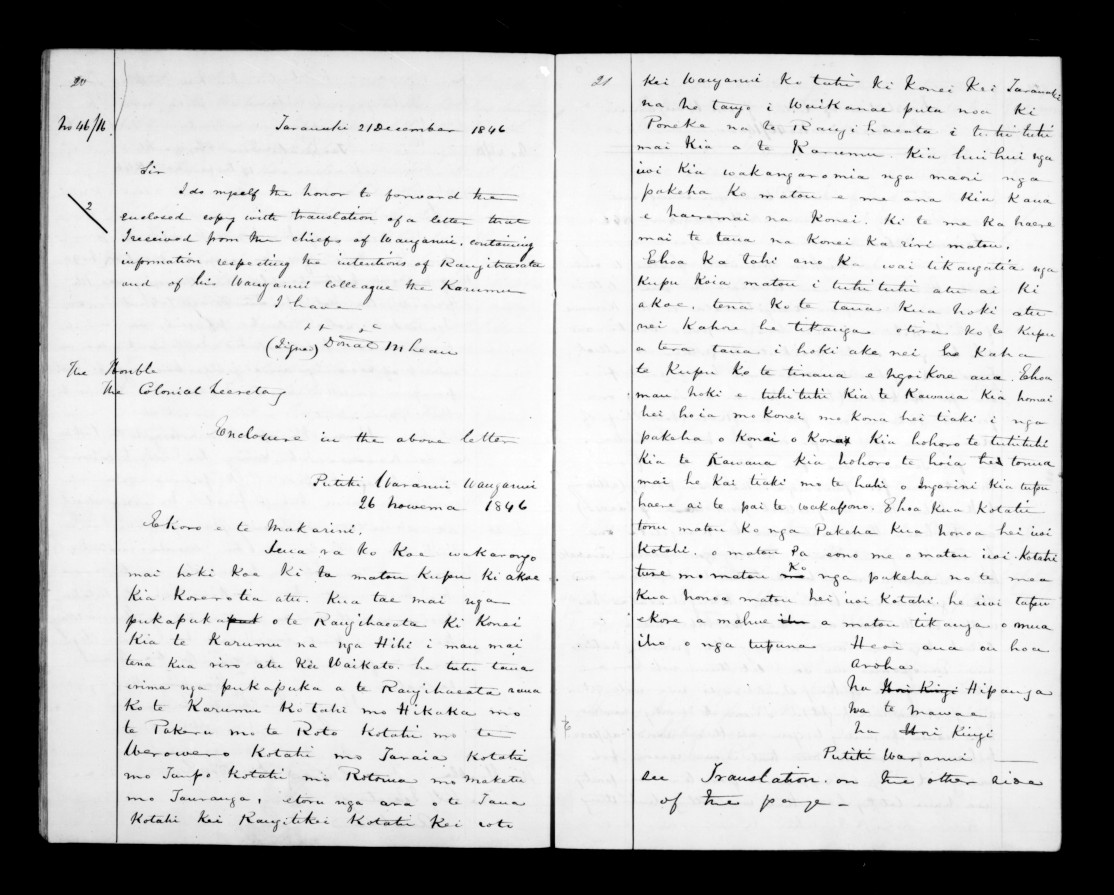 20
No 46/16.
Taranaki 21 December 1846
Sir
2
I do myself the honor to forward the
enclosed copy with translation of a letter that
I received from the chiefs of Wanganui, containing
information respecting the intentions of Rangihaeata
and of his Wanganui colleague the Karumu
I have
(Signed) Donald McLean
The Honble
The Colonial Secretary
Enclosure in the above letter
Putiki Waranui Wanganui
26 Nowema 1846
Ehoro e te Makarini,
Tena ra ko koe wakarongo
mai hoki koe ki ta matou kupu ki akoe
kia korerotia atu. Kua tae mai nga
pukapuka o te Rangihaeata ki konei
kia te Karumu na nga Hihi i mau mai
tena kua riro atu kia Waikato. he tutu taua
erima nga pukapuka a te Rangihaeata raua
ko te Karumu kotahi mo Hikaka mo
te Pakaru mo te Roto kotahi mo te
Werowero kotahi mo Taraia kotahi
mo Taupo kotahi mo Rotorua mo Maketu
mo Tauranga, etoru nga ara o te Taua
kotahi kei Rangitikei kotahi kei roto
21
kei Wanganui ko tuhi ki konei kei Taranaki
na he tango i Waikanae puta noa ki
Poneke na te Rangihaeata i tuhituhi
mai kia a te Karumu. kia huihui nga
iwi kia wakangaromia nga maori nga
pakeha ko matou e mea ana kia kaua
e haeremai na konei. ki te mea ka haere
mai te taua na konei ka riri matou.
Ehoa ka tahi ano ka wai tikangatia nga
kupu koia matou i tuhituhi atu ai ki
akoe, tena ko te taua kua hoki atu
nei kahore he tikanga otira ko te kupu
a tera taua i hoki ake nei he kaha
te kupu ko te tinana e ngoikore ana. Ehoa
mau hoki e tuhituhi kia te Kawana kia homai
hei hoia mo konei mo kona hei tiaki i nga
pakeha o konei o kona kia hohoro te tuhituhi
kia te Kawana kia hohoro te hoia te tonua
mai he kai tiaki mo te huhi o Ingarini kia tupu
haere ai te pai te wakapono. Ehoa kua kotahi
tonu matou ko nga Pakeha kua honoa hei iwi
kotahi. o matou Pa eono me o matou iwi. kotahi
ture mo matou ko nga pakeha no te mea
kua honoa matou hei iwi kotahi, he iwi tapu
ekore e mahue a matou tikanga o mua
iho o nga tupuna. Heoi ana ou hoa
aroha
Na Hori Kingi Hipango
Na te Mawae
Na Hori Kingi
Putiki Waranui
see Translation on the other side
of the page -